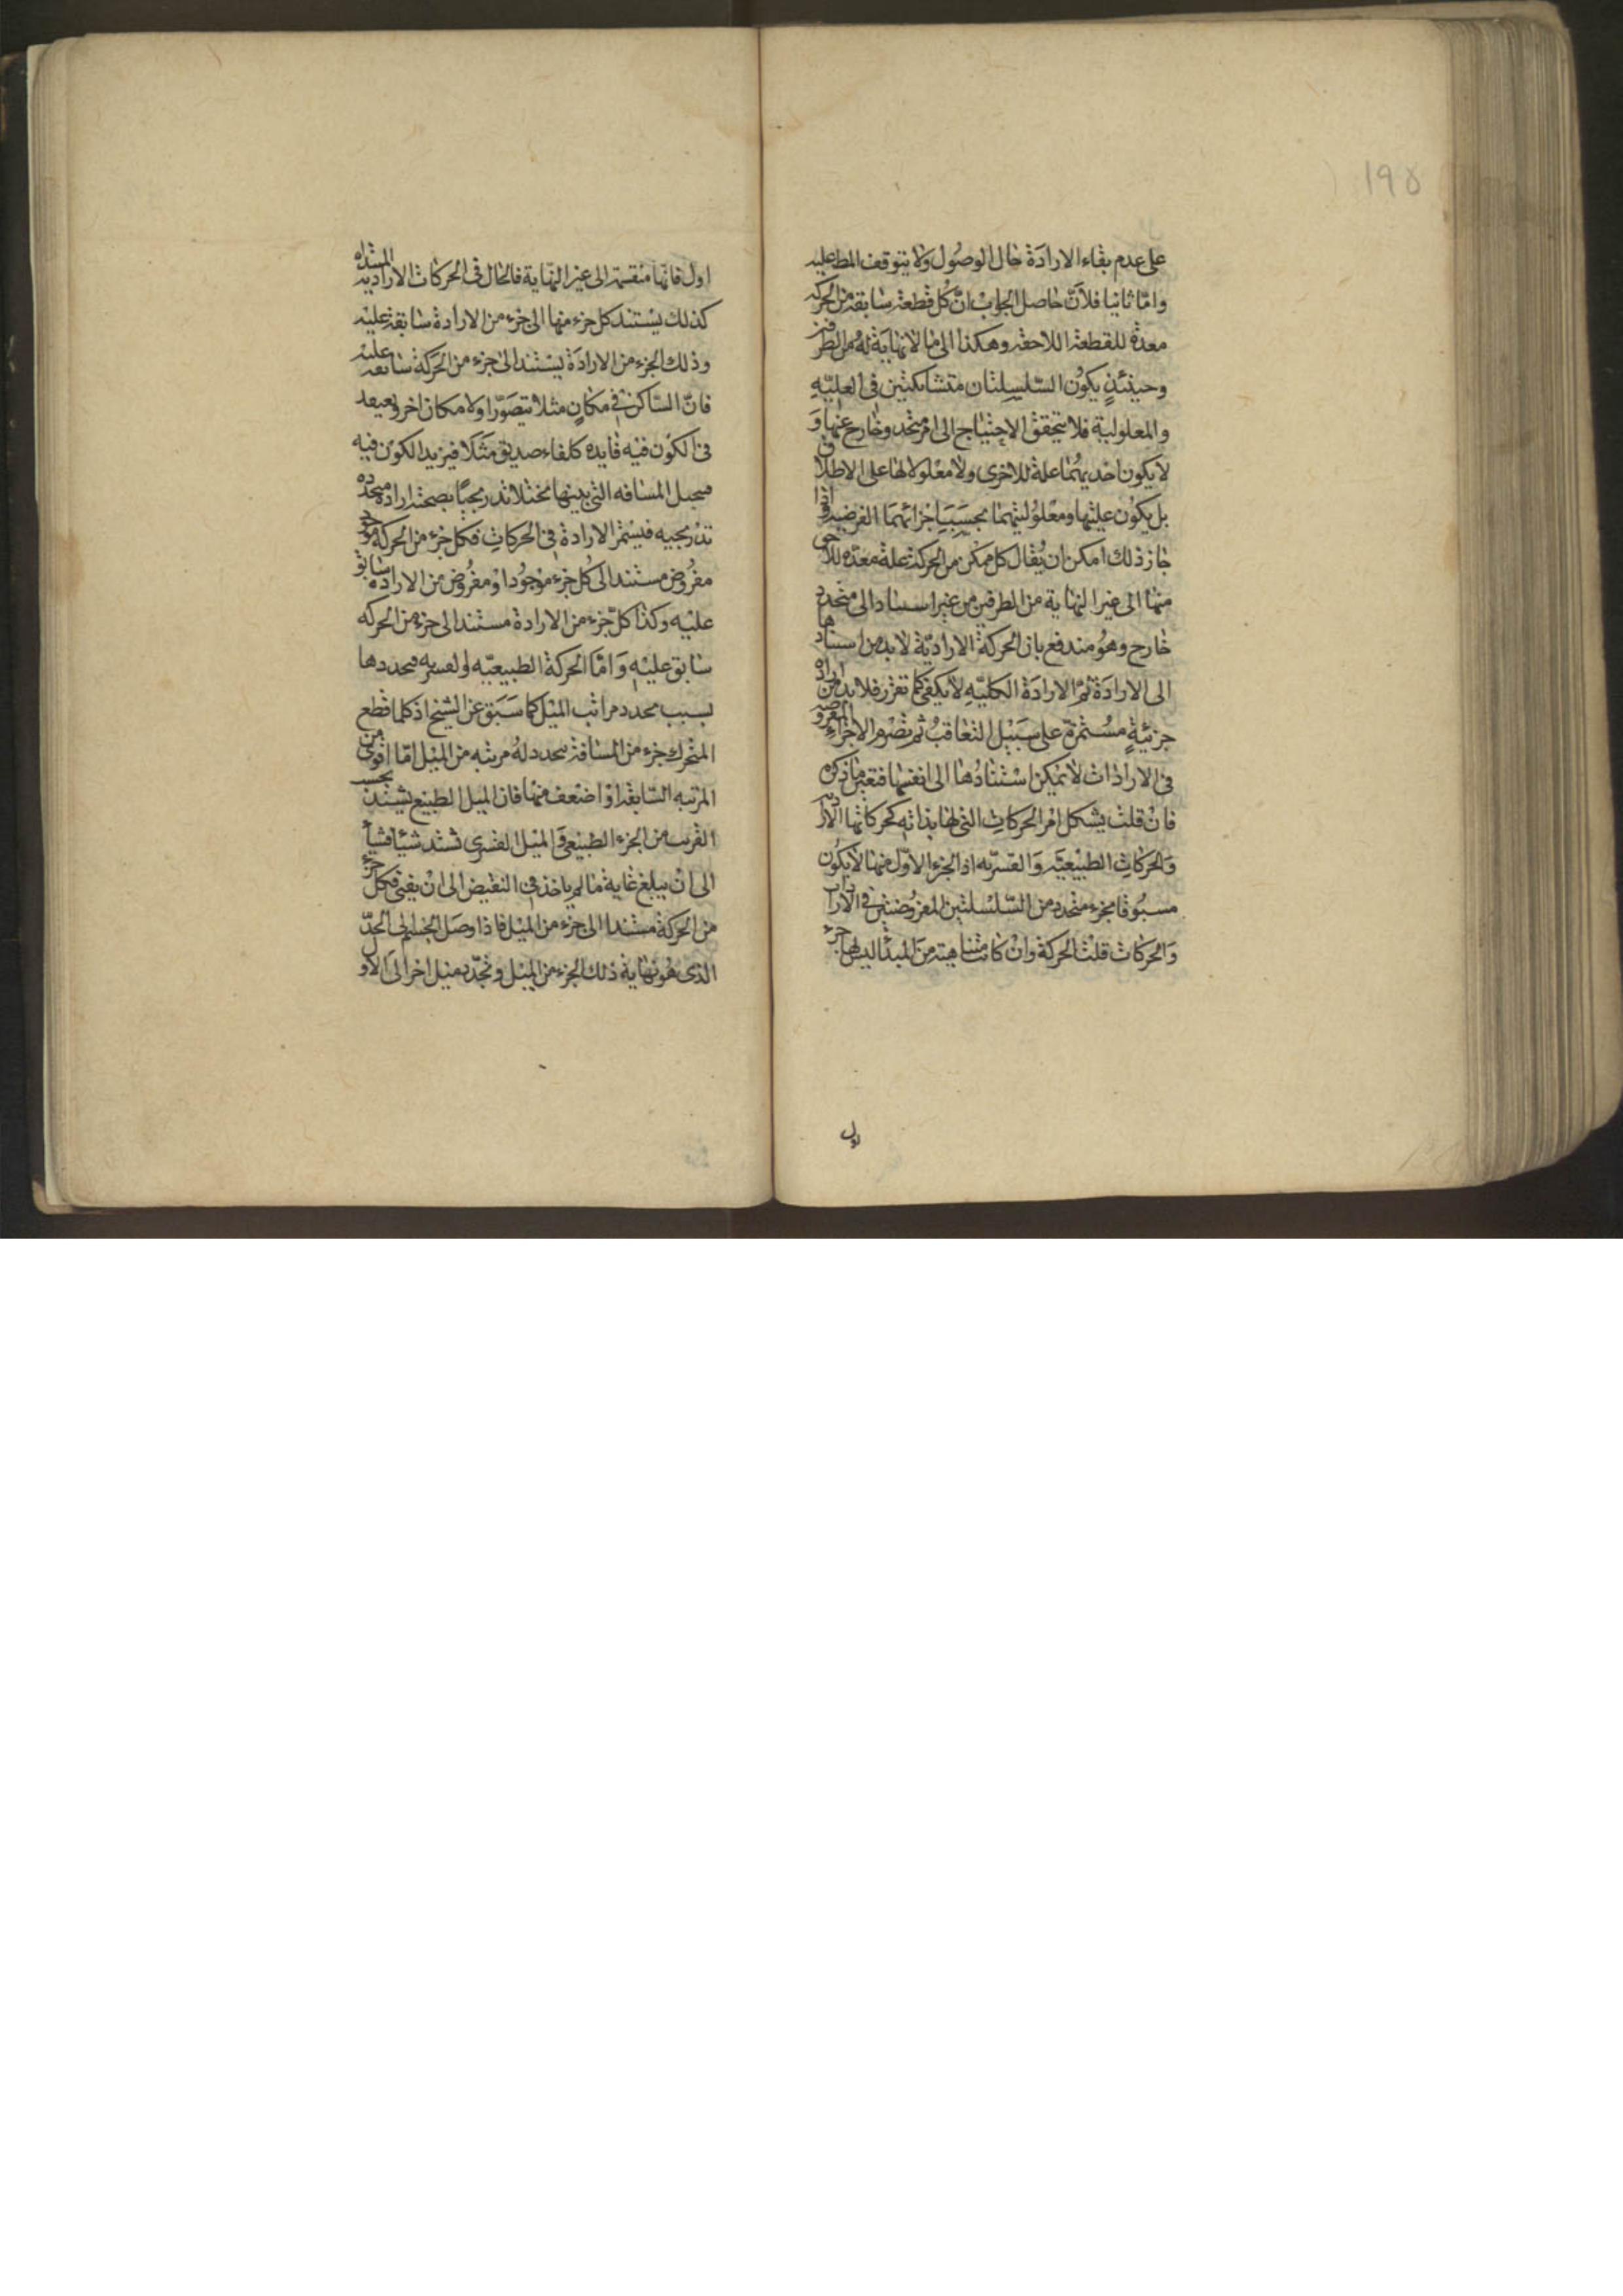 ١٩٥
على عدم بقاء الارادة حال الوصول ولا يتوقف المط عليه
واما ثانيا فلان حاصل الجواب ان كل قطعة سابقة من الحركه
معدة للقطعة اللاحقة وهكذا الى ما لا نهاية له من الطرفين
وحينئذ يكون السلسلتان متشابكتين في العليه
والمعلولية فلا يتحقق الاحتياج الى امر متجدد خارج عنها و
لا يكون احديهما علة للاخرى ولا معلولا لها على الاطلاق
بل يكون عليتها ومعلوليتهما بحسب اجزائهما الفرضيه واذا
جاز ذلك امكن ان يقال كل ممكن من الحركة علة معده للاخرى
منها الى غير النهاية من الطرفين من غير استناد الى متجدد
خارج وهو مندفع بان الحركة الارادية لابد من استنادها
الى الارادة ثم الارادة الكليه لا يكفي كما تقرر فلابد من ارادة
جزئية مستمرة على سبيل التعاقب ثم تصور الاجزاء المفروضه
في الارادات لا يمكن استنادها الى انفسها فتعين ما ذكره
فان قلت يشكل امر الحركات التي لها بداية كحركاتها الارادية
والحركات الطبيعيه والقسريه اذ الجزء الاول منها لا يكون
مسبوقا بجزء متجدد من السلسلتين المفروضتين في الارادات
والحركات قلت الحركة وان كانت متناهية من المبدأ ليس لها جزء
اول
اول فانها منقسمة الى غير النهاية فالحال في الحركات الارادية المبتداه
كذلك يستند كل جزء منها الى جزء من الارادة سابقة عليه
وذلك الجزء من الارادة يستند الى جزء من الحركة سابقة عليه
فان الساكن في مكان مثلا يتصور اولا مكان اخر ويعتقد
في الكون فيه فايده كلقاء صديق مثلا فيريد الكون فيه
فيتخيل المسافه التي بينها تخيلا تدريجيا بصحته ارادة متجدده
تدريجيه فيستمر الارادة في الحركات فكل جزء من الحركة موجود
مفروض مستند الى كل جزء موجود او مفروض من الاراده سابق
عليه وكذا كل جزء من الارادة مستند الى جزء من الحركه
سابق عليه واما الحركة الطبيعيه او القسريه فتجددها
بسبب تجدد مراتب الميل كما سبق عن الشيخ اذ كلما قطع
المتحرك جزء من المسافة تجدد له مرتبه من الميل اما اقوى من
المرتبه السابقة او اضعف منها فان الميل الطبيعي يشتد بحسب
القرب من الجزء الطبيعي والميل القسري تشتد شيئا فشيأ
الى ان يبلغ غاية ما ثم ياخذ في النقيض الى ان يفنى فكل جزء
من الحركة مستندا الى جزء من الميل فاذا وصل الجسم الى الحد
الذي هو نهاية ذلك الجزء من الميل وتجدد ميل اخر الى الاول